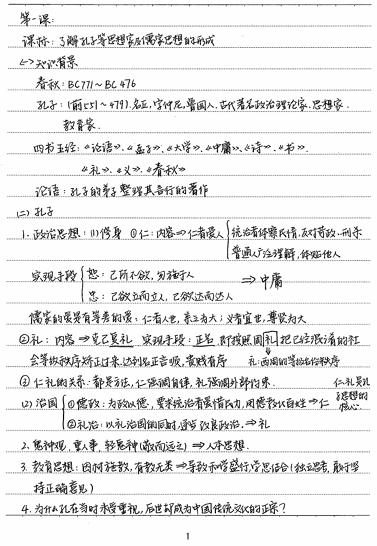 第一课：
课标：了解孔子等思想家及儒家思想的形成
<一>知识背景
春秋：BC771～BC476
孔子：(前551～479)．名丘，字仲尼，鲁国人．古代著名政治理论家．思想家．
教育家．
四书五经：《论语》、《孟子》、《大学》、《中庸》、《诗》、《书》、
《礼》、《义》、《春秋》
论语：孔子的弟子整理其言行的著作
(二)孔子
1．政治思想：(1)修身 ①仁：内容⇒仁者爱人 统治者体察民情，反对苛政．刑杀
普通人广泛理解，体贴他人
实现手段 恕：己所不欲，勿施于人 ⇒中庸
忠：己欲立而立人，己欲达而达人
儒家的爱是有等差的爱：仁者人也，亲亲为大；义者宜也，尊贤为大
②礼：内容⇒克己复礼 实现手段：正名 即按照周礼把已经混乱的社
会等级秩序矫正过来．达到名正言顺，贵贱有序 礼：西周的等级名份秩序
③仁礼的关系：都是为正，仁强调自律，礼强调外部约束． 仁、礼是孔
子思想的
核心．
(2)治国 ①德政：为政以德，要求统治者爱惜民力，用德教化百姓⇒仁
②礼治：以礼治国的同时，适当改良政治．⇒礼
2．鬼神观，重人事，轻鬼神(敬而远之)⇒人本思想．
3．教育思想：因材施教，有教无类⇒导致私学盛行，学思结合(独立思考，敢于坚
持正确意见)
4．为什么孔在当时未受重视，后世却成为中国传统文化的正宗？
1